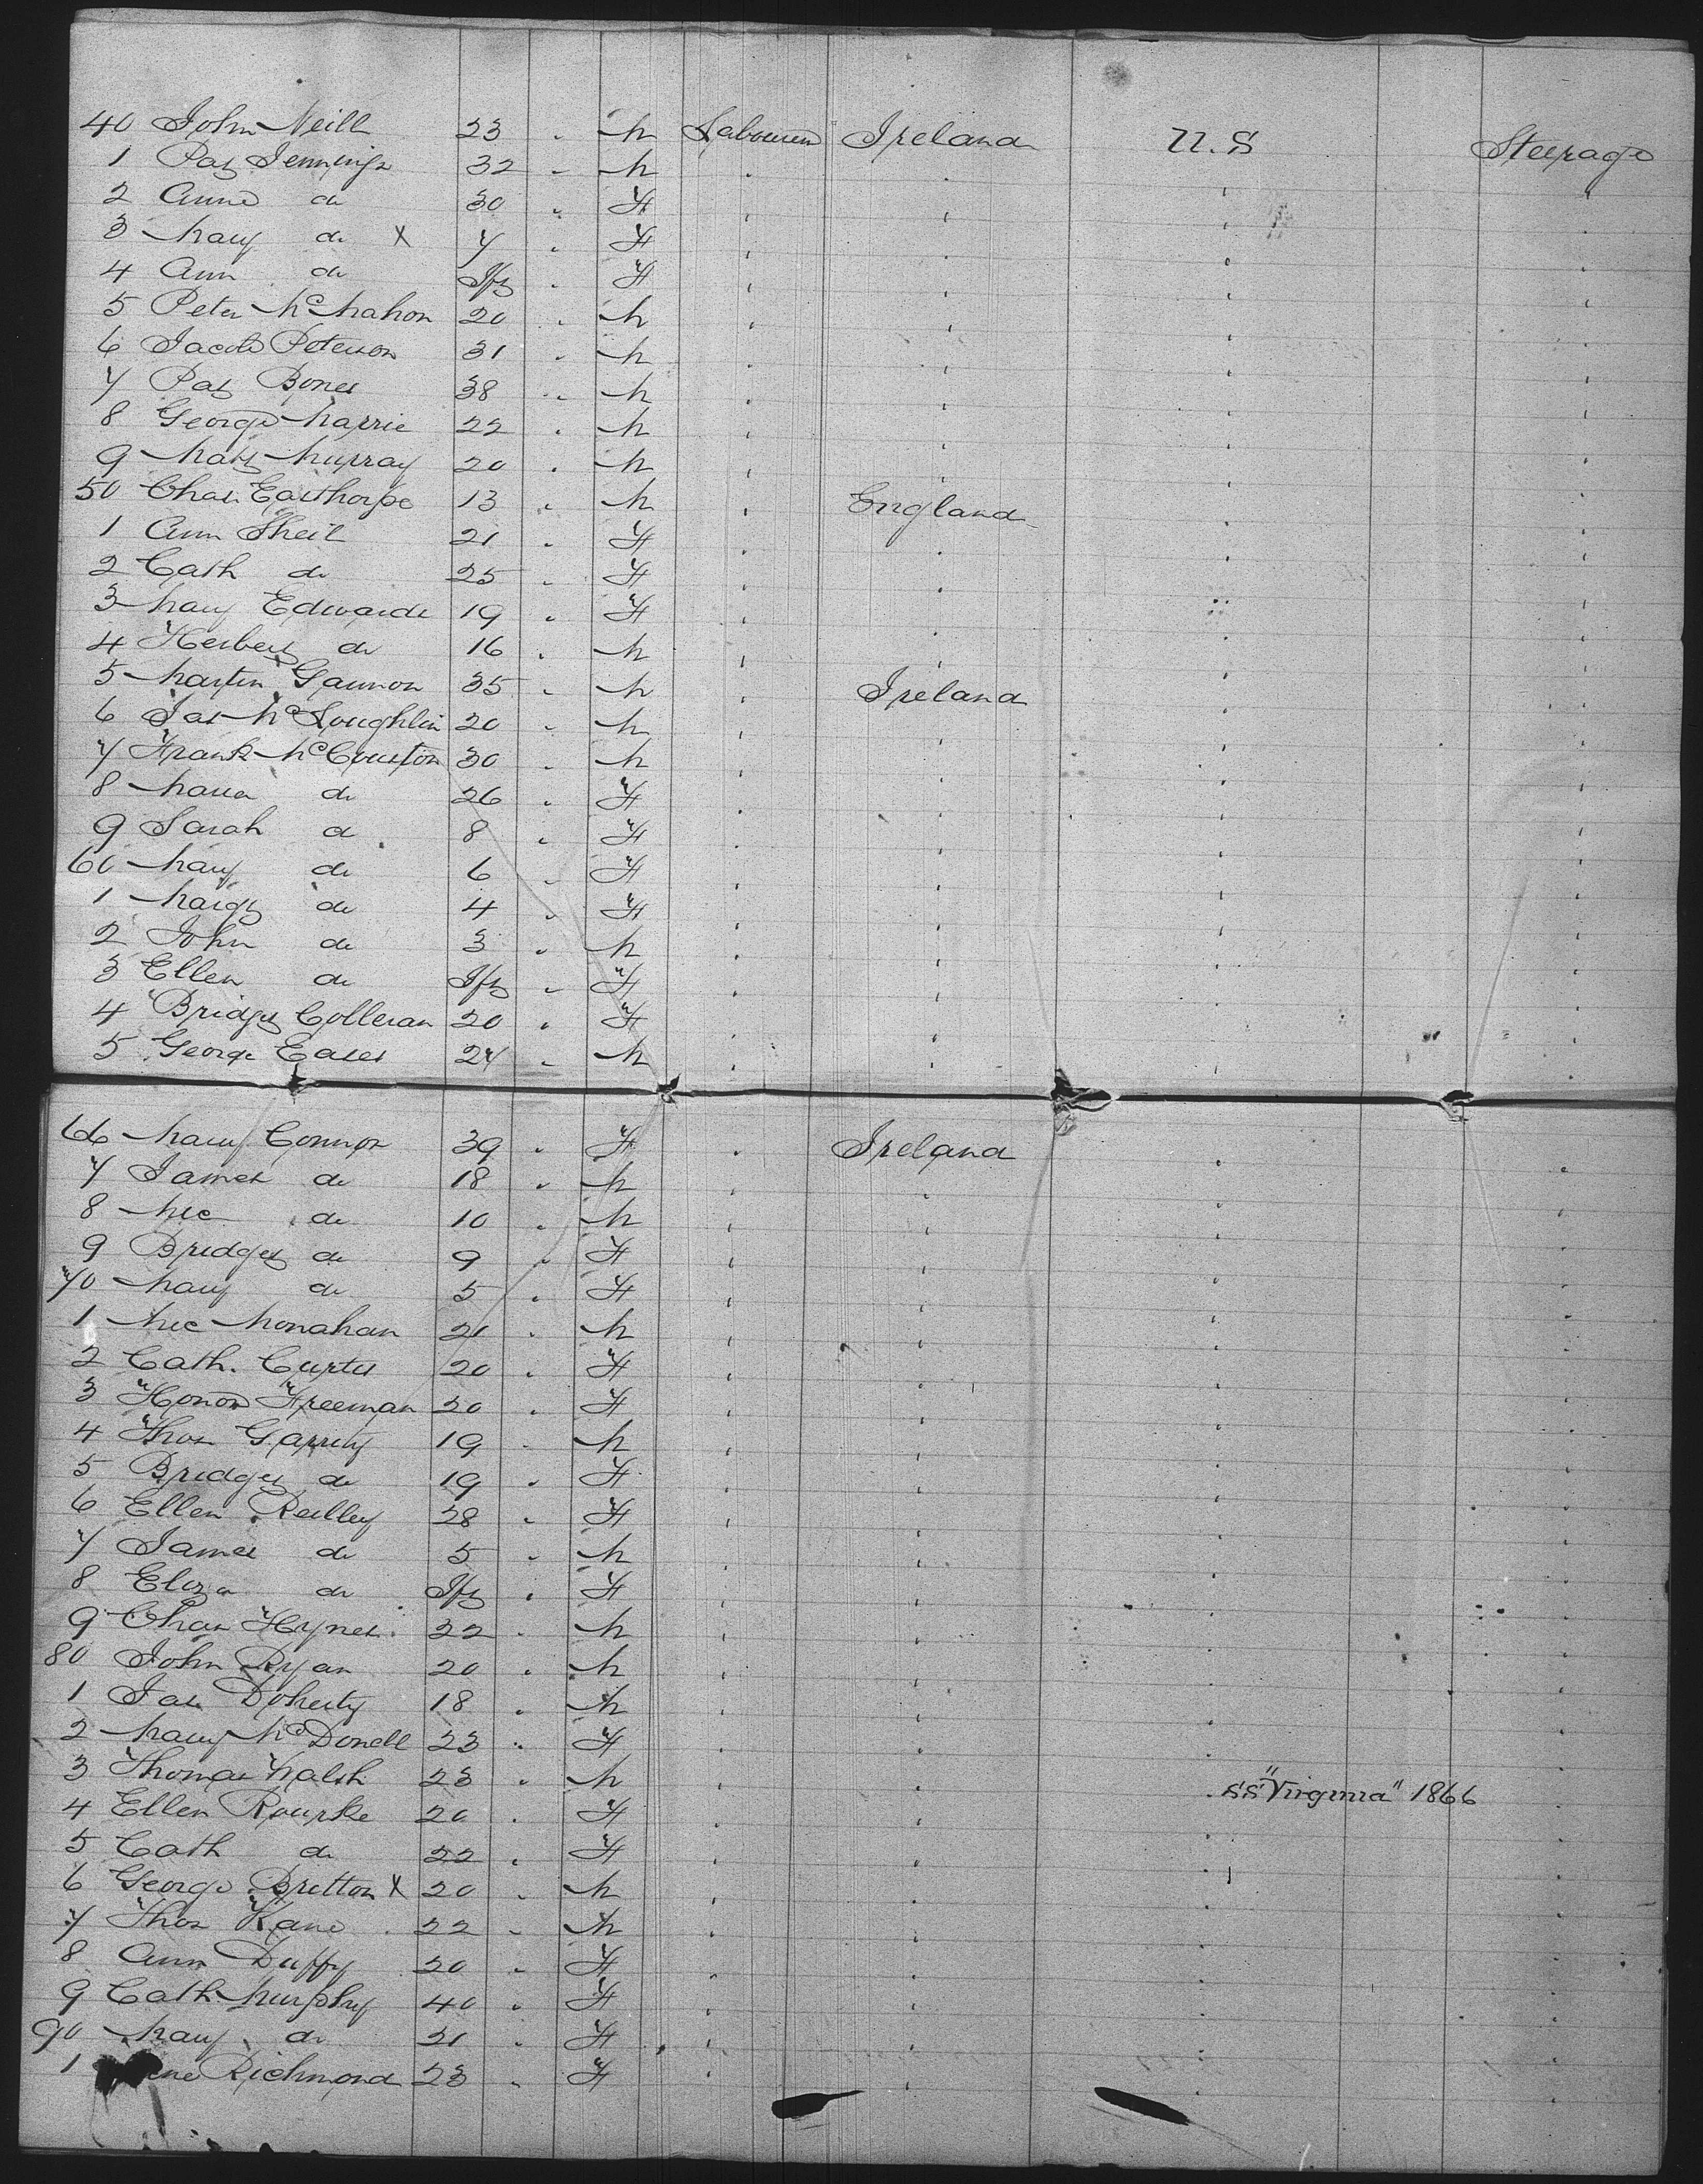 40 John Neill 23 " M Labourer Ireland U.S Steerage
1 Pat Jennings 32 " M " " " "
2 Anne do 30 " F " " " "
3 Mary do X 7 " F " " " "
4 Ann do Inft " F " " " "
5 Peter McMahon 20 " M " " " "
6 Jacob Peterson 31 " M " " " "
7 Pat Bones 38 " M " " " "
8 George Harrie 22 " M " " " "
9 Matt Murray 20 " M " " " "
50 Chas Easthorpe 13 " M " England " "
1 Ann Sheil 21 " F " " " "
2 Cath do 25 " F " " " "
3 Mary Edwards 19 " F " " " "
4 Herbert do 16 " M " " " "
5 Martin Gannon 35 " M " Ireland " "
6 Jas McLoughlin 20 " M " " " "
7 Frank McCourton 30 " M " " " "
8 Maria do 26 " F " " " "
9 Sarah do 8 " F " " " "
60 Mary do 6 " F " " " "
1 Margt do 4 " F " " " "
2 John do 3 " M " " " "
3 Ellen do Inft " F " " " "
4 Bridget Colleran 20 " F " " " "
5 George Eases 27 " M " " " "
66 Mary Connor 39 " F " Ireland " "
7 James do 18 " M " " " "
8 Mic do 10 " M " " " "
9 Bridget do 9 " F " " " "
70 Mary do 5 " F " " " "
1 Mic Monahan 21 " M " " " "
2 Cath. Curtis 20 " F " " " "
3 Honor Freeman 20 " F " " " "
4 Thos Garrity 19 " M " " " "
5 Bridget do 19 " F " " " "
6 Ellen Reilley 28 " F " " " "
7 James do 5 " M " " " "
8 Eliza do Inft " F " " " "
9 Chas Hynes 22 " M " " " "
80 John Ryan 20 " M " " " "
1 Jas Doherty 18 " M " " " "
2 Mary McDonell 23 " F " " " "
3 Thomas Walsh 23 " M " " " "
SS "Virginia" 1866
4 Ellen Rourke 20 " F " " " "
5 Cath do 22 " F " " " "
6 George Bretton X 20 " M " " " "
7 Thos Kane 22 " M " " " "
8 Ann Duffy 20 " F " " " "
9 Cath Murphy 40 " F " " " "
90 Mary do 21 " F " " " "
1 Richmond 23 " F " " " "